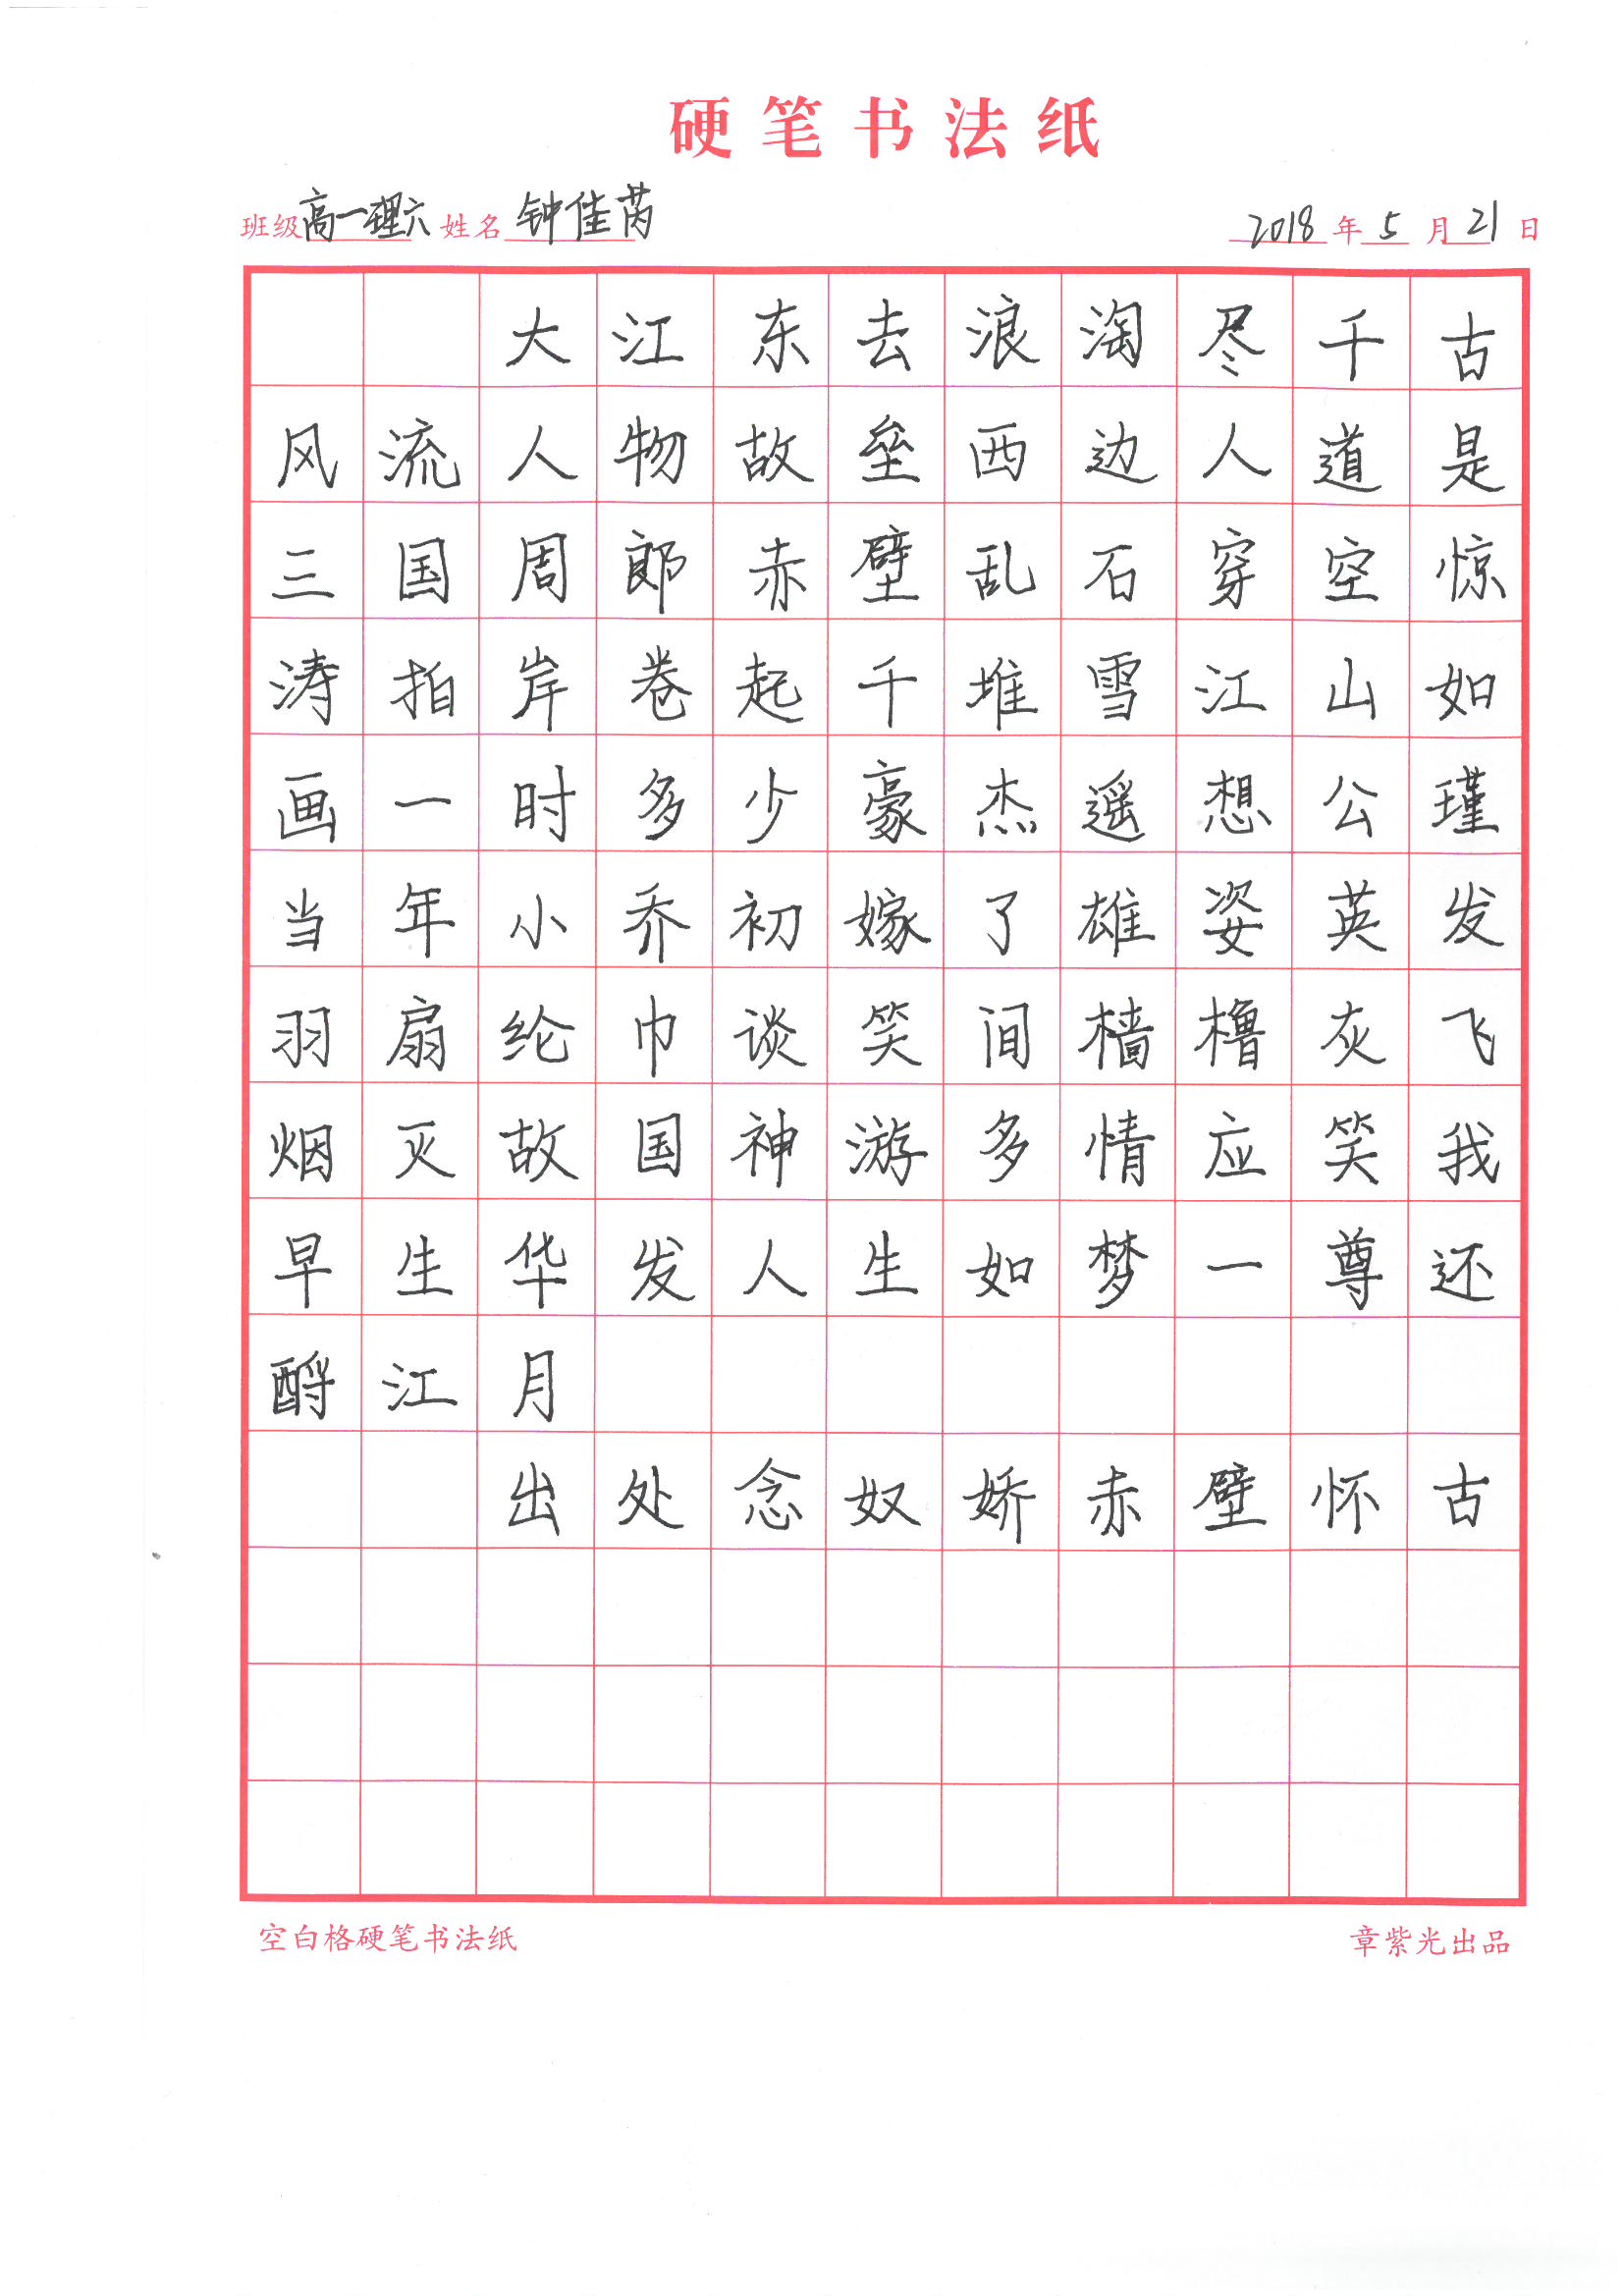 硬笔书法纸
班级高一理六 姓名钟佳芮 2018年5月21日
大江东去浪淘尽千古
风流人物故垒西边人道是
三国周郎赤壁乱石穿空惊
涛拍岸卷起千堆雪江山如
画一时多少豪杰遥想公瑾
当年小乔初嫁了雄姿英发
羽扇纶巾谈笑间樯橹灰飞
烟灭故国神游多情应笑我
早生华发人生如梦一尊还
酹江月
出处念奴娇赤壁怀古
空白格硬笔书法纸 章紫光出品